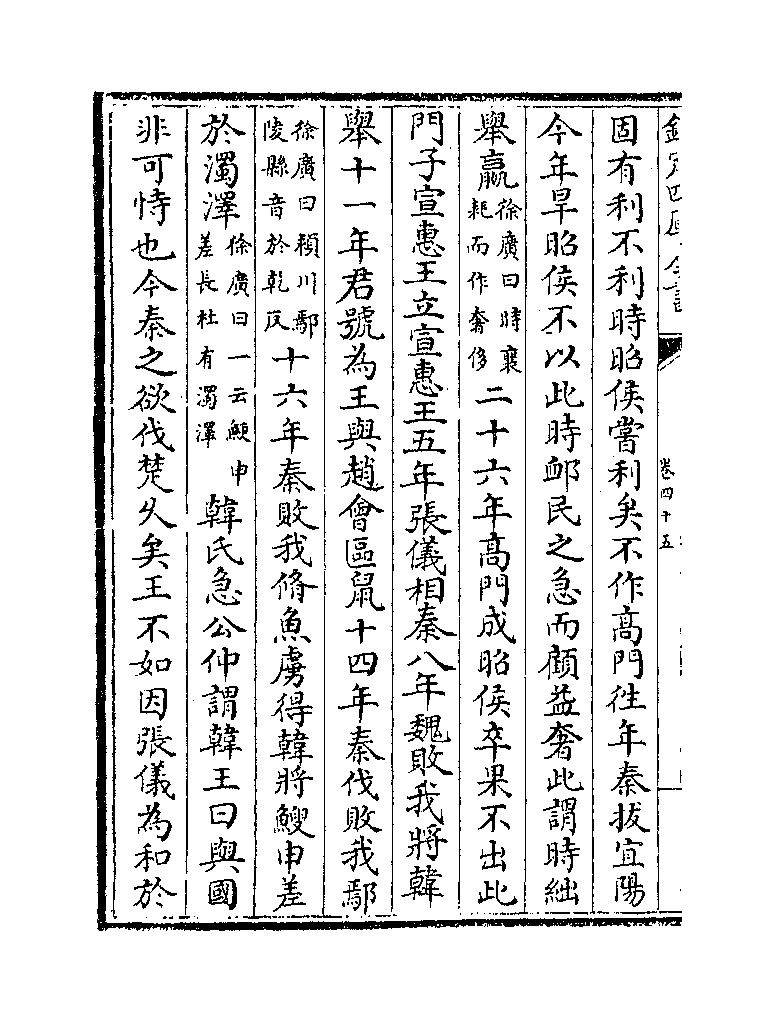 欽定四庫全書
卷四十五
固有利不利時昭侯嘗利矣不作髙門徃年秦拔宜陽
今年旱昭侯不以此時䘏民之急而顧益奢此謂時絀
舉贏徐廣曰時衰耗而作奢侈二十六年髙門成昭侯卒果不出此
門子宣惠王立宣惠王五年張儀相秦八年魏敗我將韓
舉十一年君號為王與趙㑹區鼠十四年秦伐敗我鄢
徐廣曰潁川鄢陵縣音於乾反十六年秦敗我脩魚虜得韓將鰒申差
於濁澤徐廣曰一云鯁申差長社有濁澤韓氏急公仲謂韓王曰與國
非可恃也今秦之欲伐楚久矣王不如因張儀為和於